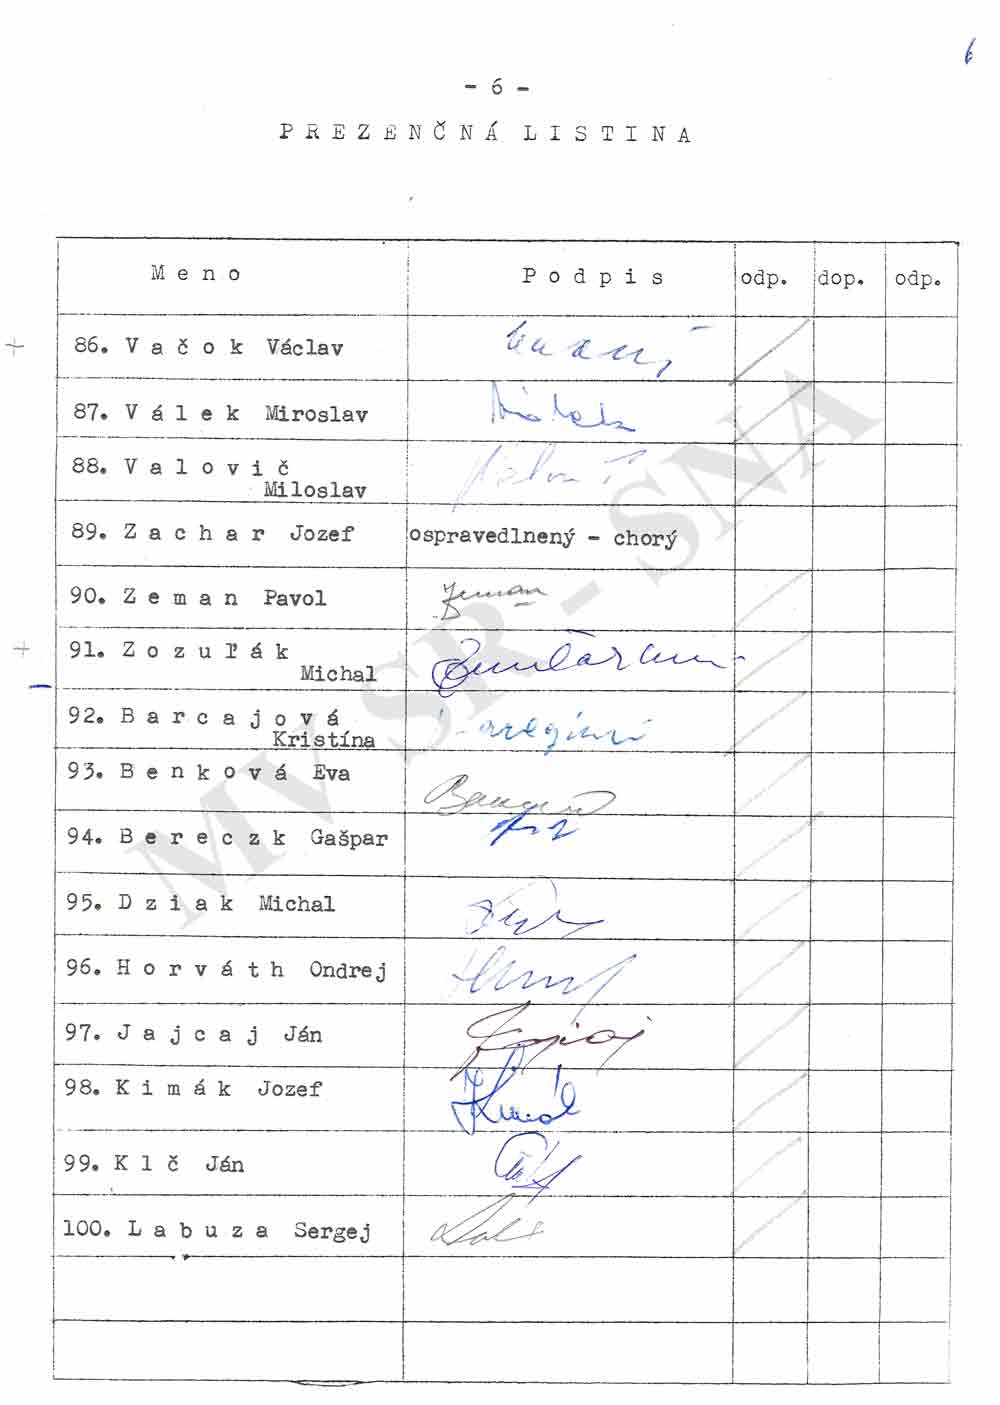 6
- 6 -
PREZENČNÁ LISTINA
Meno Podpis odp. dop. odp.
+ 86. Vačok Václav
87. Válek Miroslav
88. Valovič
Miloslav
89. Zachar Jozef ospravedlnený - chorý
90. Zeman Pavol Zeman
+ 91. Zozuľák
Michal
92. Barcajová
Kristína
93. Benková Eva
94. Bereczk Gašpar
95. Dziak Michal
96. Horváth Ondrej
97. Jajcaj Ján Jajcaj
98. Kimák Jozef Kimák
99. Klč Ján
100. Labuza Sergej
MV SR - SNA